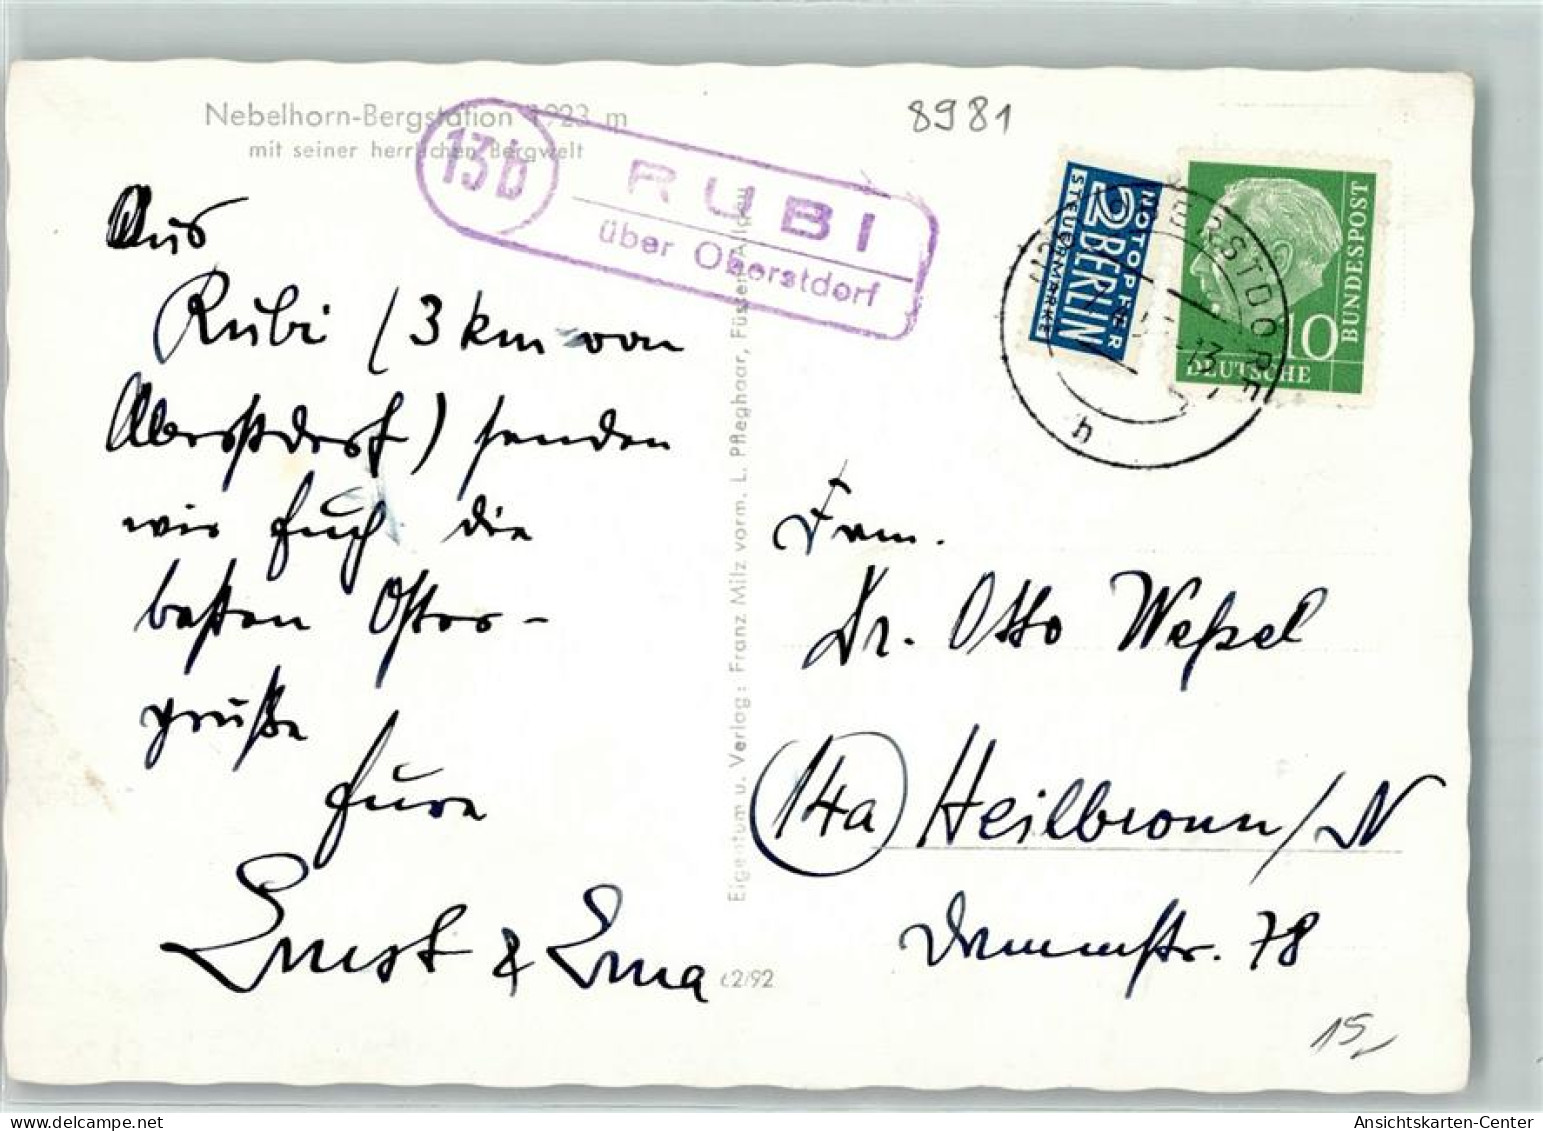 Nebelhorn-Bergstation 1923 m
mit seiner herrlichen Bergwelt
8981
13b
RUBI
über Oberstdorf
NOTOPFER
2 BERLIN
STEUERMARKE
OBERSTDORF
-13
DEUTSCHE
BUNDESPOST
10
Aus
Rubi (3 km von
Oberstdorf) senden
wir Euch die
besten Oster-
grüße
Eure
Ernst & Erna
Eigentum u. Verlag: Franz Milz vorm. L. Pfleghaar, Füssen-Allgäu
c2/92
Fam.
Dr. Otto Weßel
14a Heilbronn/N
Dammstr. 78
15,-
Ansichtskarten-Center